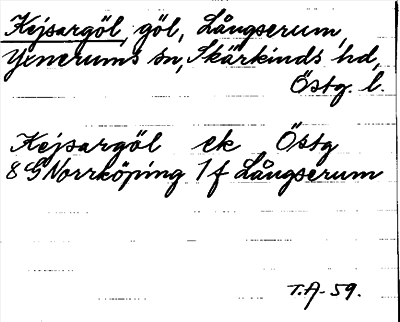 Kejsargöl, göl, Långserum,
Yxnerums sn, Skärkinds hd,
Östg. l.
Kejsargöl ek Östg
8 G Norrköping 1 f Långserum
T.A. 59.